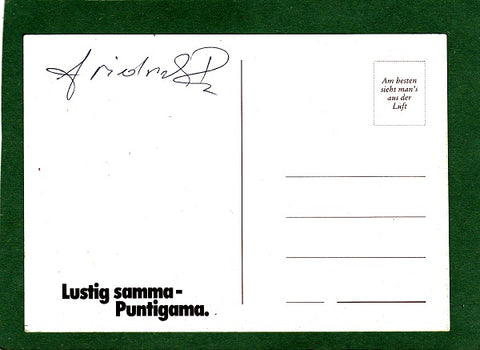 Am besten
sieht man's
aus der
Luft
Lustig samma-
Puntigama.